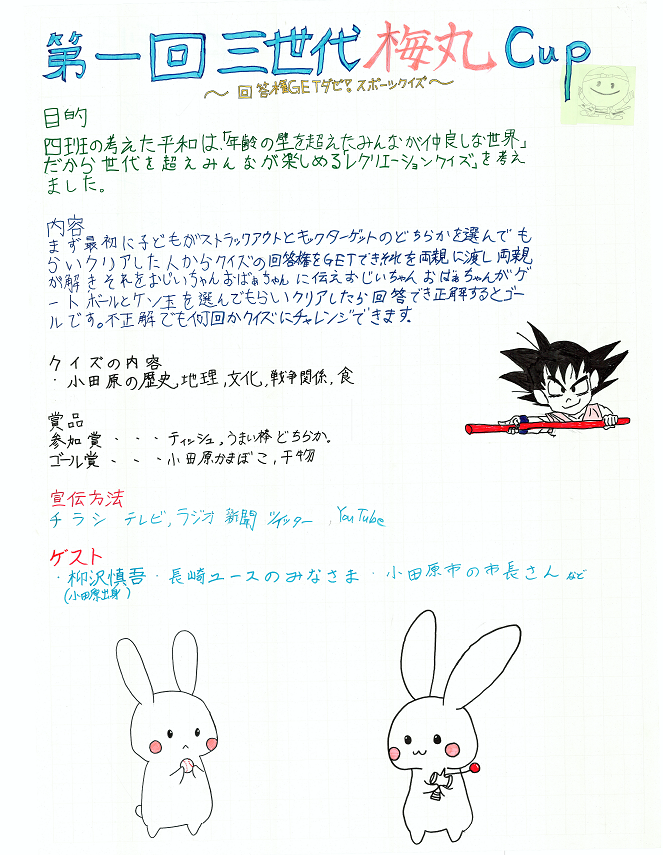 第一回三世代梅丸Cup
～回答権GETダゼ?スポーツクイズ～
目的
四班の考えた平和は、「年齢の壁を超えたみんなが仲良しな世界」
だから世代を超えみんなが楽しめる「レクリエーションクイズ」を考え
ました。
内容
まず最初に子どもがストラックアウトとキックターゲットのどちらかを選んでも
らいクリアした人からクイズの回答権をGETできそれを両親に渡し両親
が解きそれをおじいちゃんおばぁちゃんに伝えおじいちゃんおばぁちゃんがゲ
ートボールとケン玉を選んでもらいクリアしたら回答でき正解するとゴー
ルです。不正解でも何回かクイズにチャレンジできます。
クイズの内容
・小田原の歴史,地理,文化,戦争関係,食
賞品
参加賞・・・ティッシュ,うまい棒どちらか。
ゴール賞・・・小田原かまぼこ,干物
宣伝方法
チラシ テレビ,ラジオ 新聞 ツイッター ,YouTube
ゲスト
・柳沢慎吾・長崎ユースのみなさま・小田原市の市長さん など
(小田原出身)